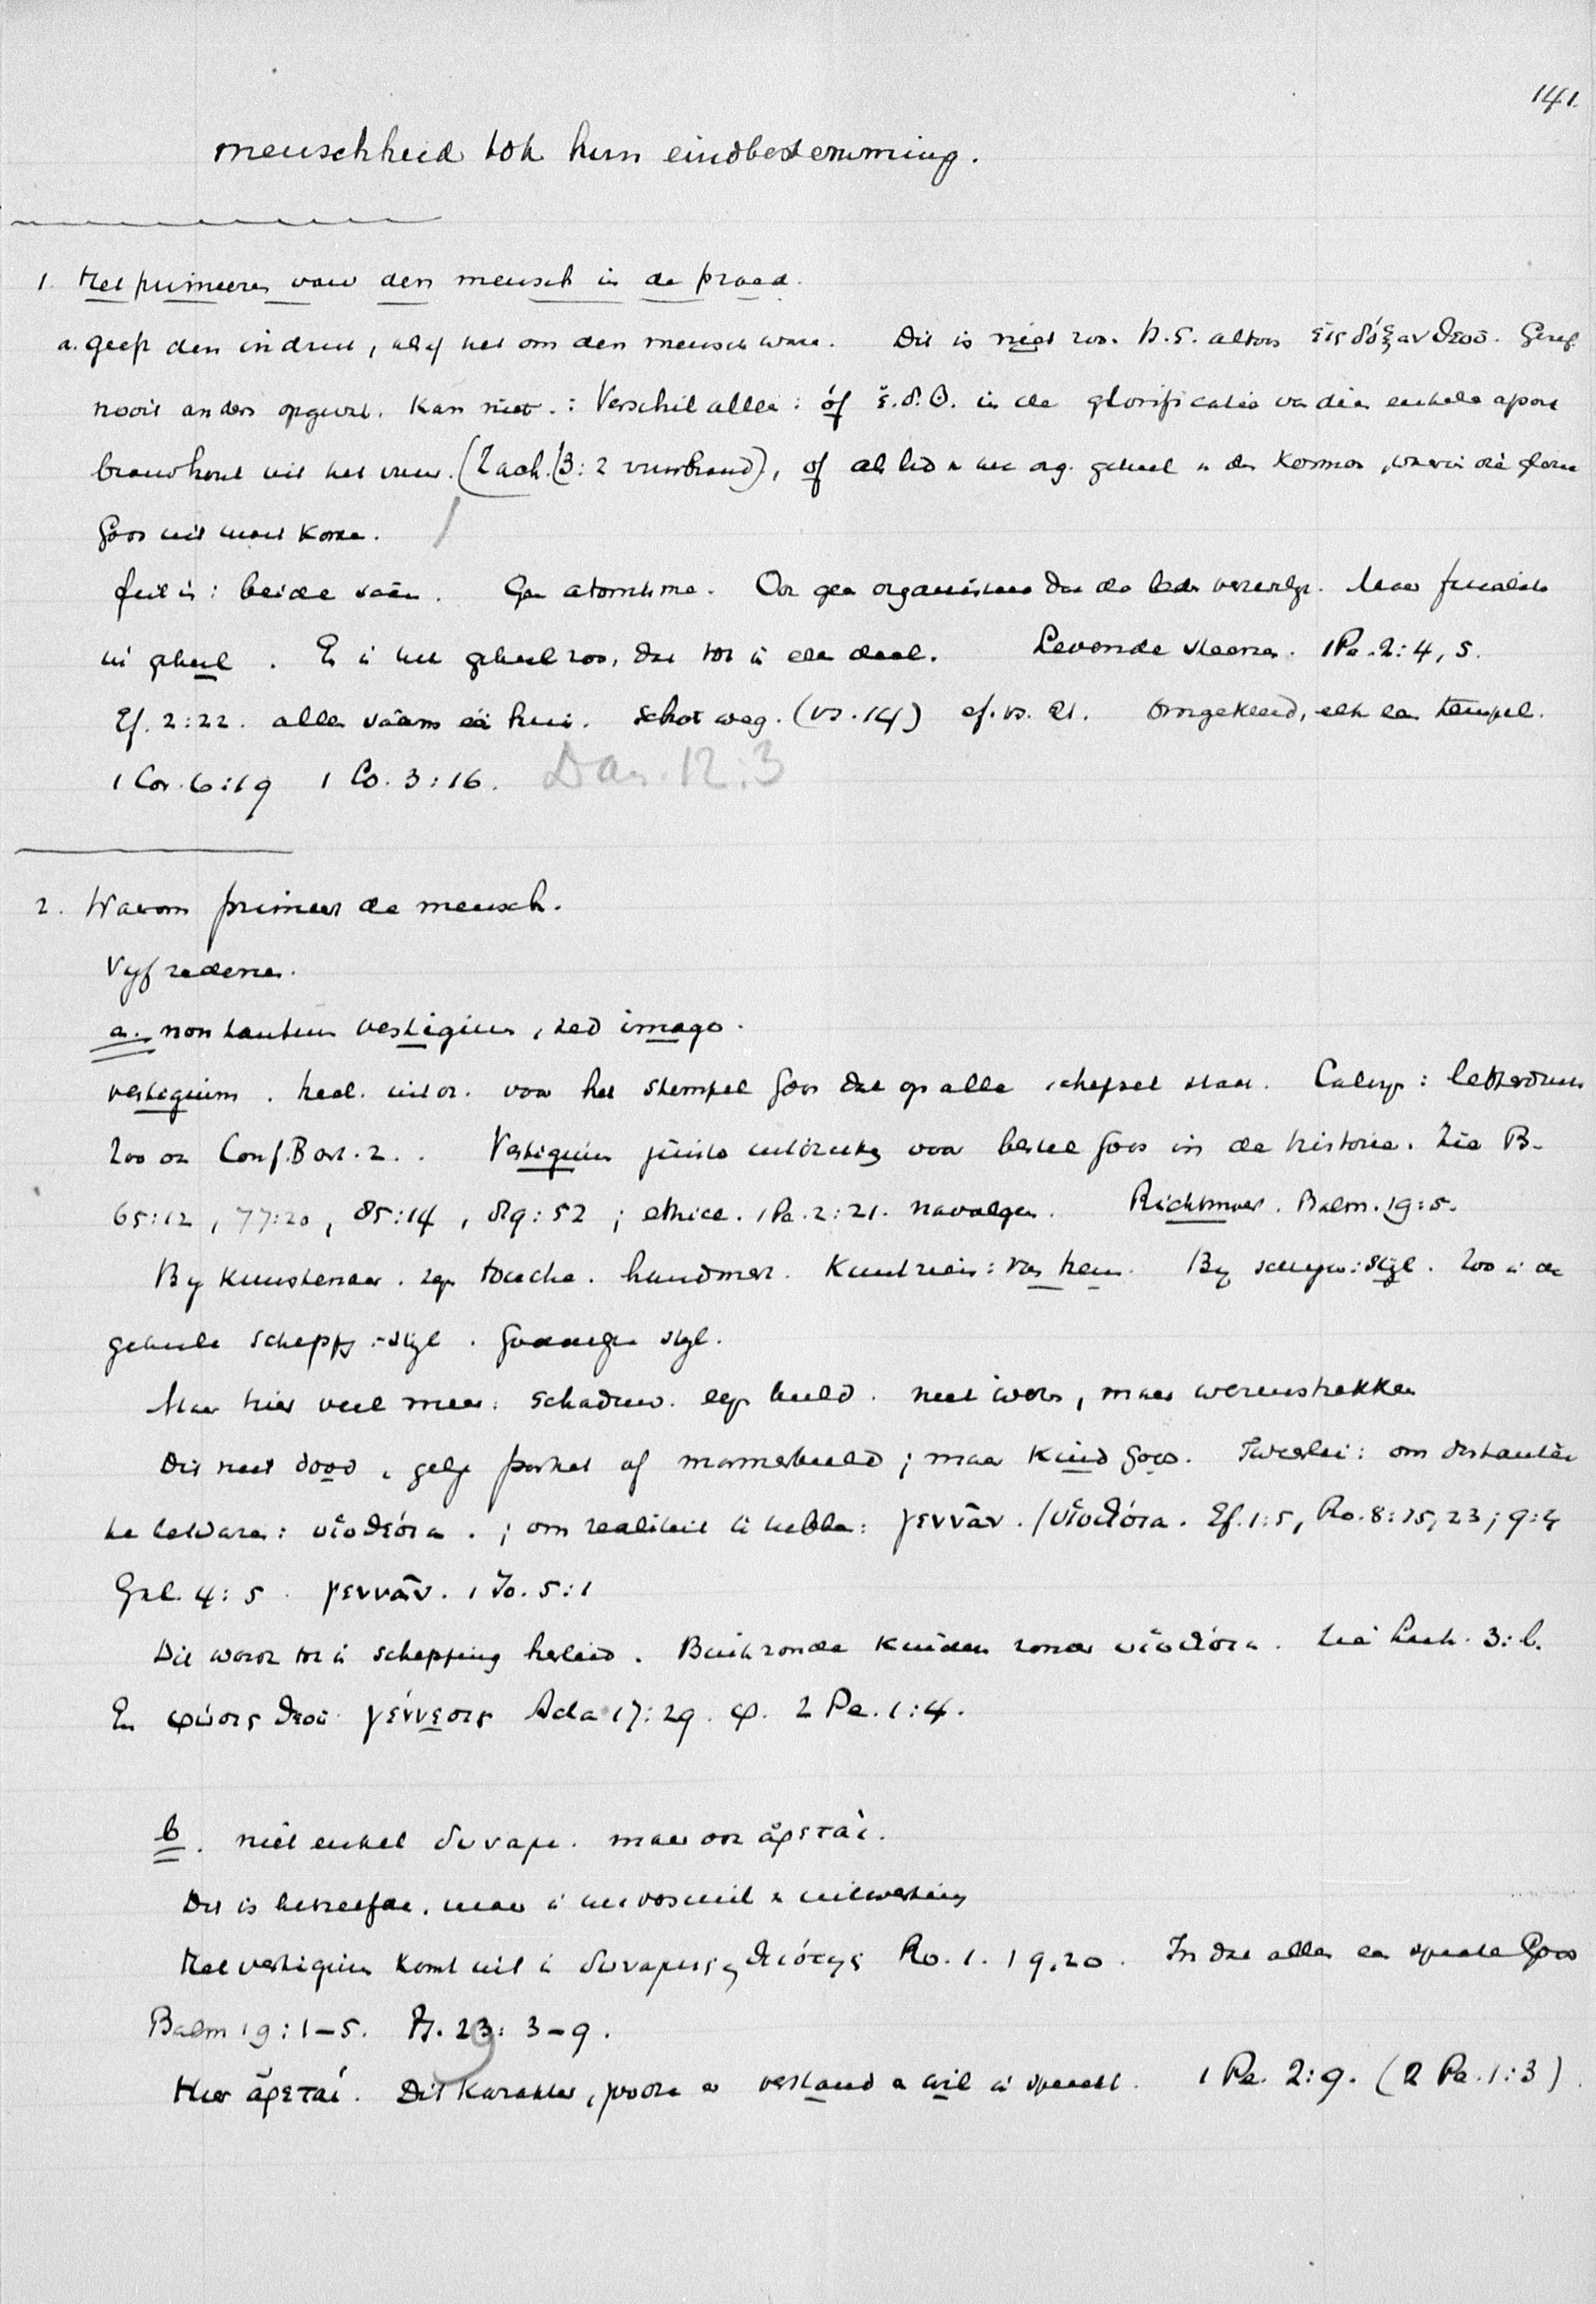 141.
menschheid tot hun eindbestemming.
1. Het primeeren van den mensch in de praed.
a. geeft den indruk, alsof het om den mensch ware. Dit is niet zoo. H.S. altoos εἰς δόξαν θεοῦ. Geref.
nooit anders opgevat. Kan niet. : Verschil alleen : óf ἐ.δ.Θ. in de glorificatie van die enkele apart
brandhout uit het vuur. (Zach. 3:2 vuurbrand), óf als lid v. het org. geheel v. den Kosmos, waarin die glorie
Gods uit moet komen.
feit is : beide saâm. Geen atomisme. Ook geen organisme dat de leden verzwelgt. Maar
in geheel. En in het geheel zoo, dat tot in elk deel. Levende steenen. 1 Pe. 2:4, 5.
Ef. 2:22. allen saâm één huis. Schot weg. (vs. 14) cf. vs. 21. Omgekeerd, elk een tempel.
1 Cor. 6:19 1 Co. 3:16. Dan. 12:3
2. Waarom primeert de mensch.
Vijf redenen.
a. non tantum vestigium, sed imago.
vestigium. voor het stempel Gods dat op alle schepsel staat. Calvyn : letterdruk
Zoo ook Conf. Belg. 2. Vestigium juiste uitdrukking voor bestel Gods in de historie. Zie Ps.
65:12, 77:20, 85:14, 89:52 ; ethice. 1 Pe. 2:21. navolgen. Richtsnoer. Psalm. 19:5.
By kunstenaar. zyn touche. handmerk. Kunstzin : van hem. By schryver : styl. Zoo in de
geheele schepping : styl. Goddelyke styl.
Maar hier veel meer : schaduw. eigen beeld. niet werk, maar wezenstrekken
Dit niet dood, gelyk portret of marmerbeeld ; maar Kind Gods. Tweeërlei : om distantie
te bewaren : υἱοθεσία. ; om realiteit te hebben : γεννᾶν. / υἱοθεσία. Ef. 1:5, Ro. 8:15, 23 ; 9:4
Gal. 4:5. γεννᾶν. 1 Jo. 5:1
Dit wordt tot in schepping herleid. Buiten zonde kinderen zonder υἱοθεσία. Zie Luk. 3:
En φύσις θεοῦ γέννεσις Acta 17:29. cf. 2 Pe. 1:4.
b. niet enkel δυναμ. maar ook ἀρεταί.
Dit is hetzelfde, maar in het vermogen & uitwerking
Het vestigium komt uit in δυναμις, θειότης Ro. 1. 19,20. In dat alles een sprake Gods
Psalm 19:1–5. Ps. 29: 3–9.
Hier ἀρεταί. Dit karakter, waarin verstand & wil in spreekt. 1 Pe. 2:9. (2 Pe. 1:3).